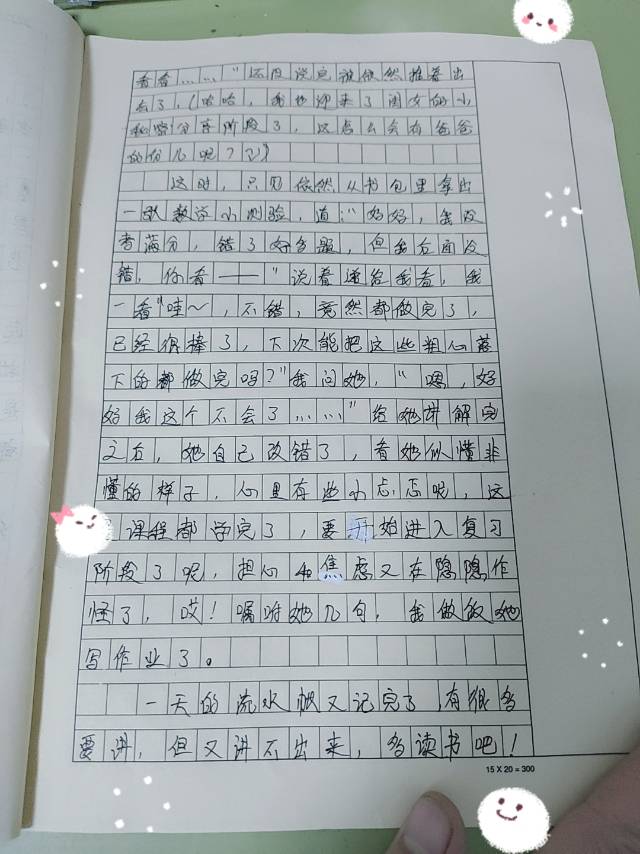 看看……"还没说完被依然推着出
去了，(哈哈，我也迎来了闺女的小
秘密分享阶段了，这怎么会有爸爸
的份儿呢？？)
这时，只见依然从书包里拿出
一张数学小测验，道："妈妈，我没
考满分，错了好多题，但我后面没
错，你看——"说着递给我看，我
一看"哇～，不错，竟然都做完了，
已经很棒了，下次能把这些粗心落
下的都做完吗？"我问她，"嗯，好
好我这个不会了……"给她讲解完
之后，她自己改错了，看她似懂非
懂的样子，心里有些小忐忑呢，这
课程都学完了，要开始进入复习
阶段了呢，担心和焦虑又在隐隐作
怪了，哎！嘱咐她几句，我做饭她
写作业了。
一天的流水帐又记完了有很多
要讲，但又讲不出来，多读书吧！
15 X 20 = 300